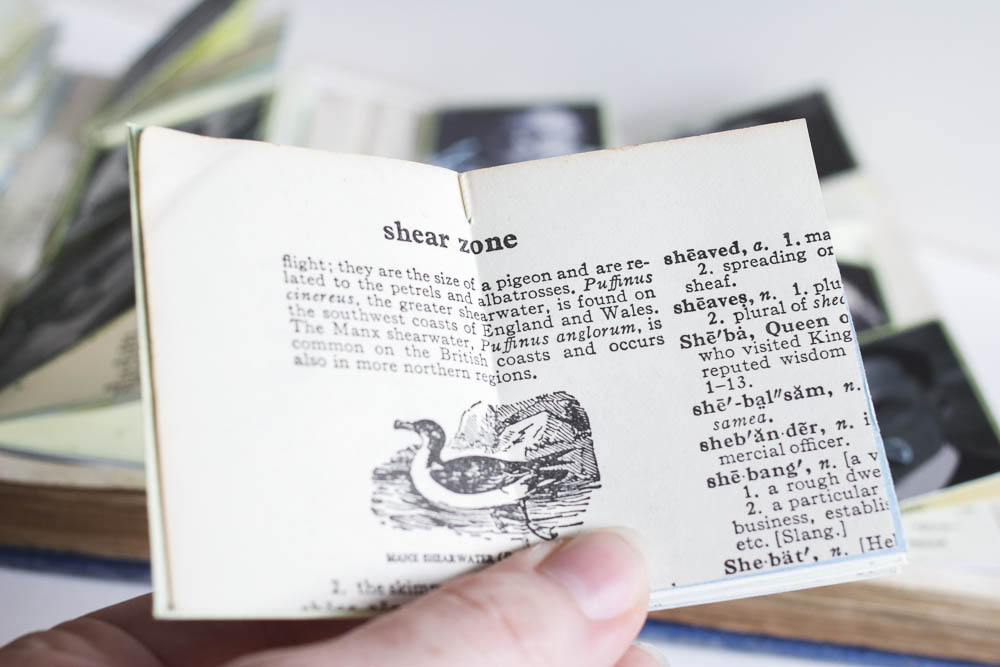 shear zone
flight; they are the size of a pigeon and are re-
lated to the petrels and albatrosses. Puffinus
cinereus, the greater shearwater, is found on
the southwest coasts of England and Wales.
The Manx shearwater, Puffinus anglorum, is
common on the British coasts and occurs
also in more northern regions.
MANX SHEARWATER
2. the skimm
shēaved, a. 1. ma
2. spreading or
sheaf.
shēaveṣ, n. 1. plu
2. plural of shea
Shē′bȧ, Queen o
who visited King
reputed wisdom
1–13.
shē′-bal″săm, n.
samea.
sheb′ăn·dẽr, n. i
mercial officer.
shē·bang′, n. [a v
1. a rough dwe
2. a particular
business, establis
etc. [Slang.]
She·bät′, n. [He